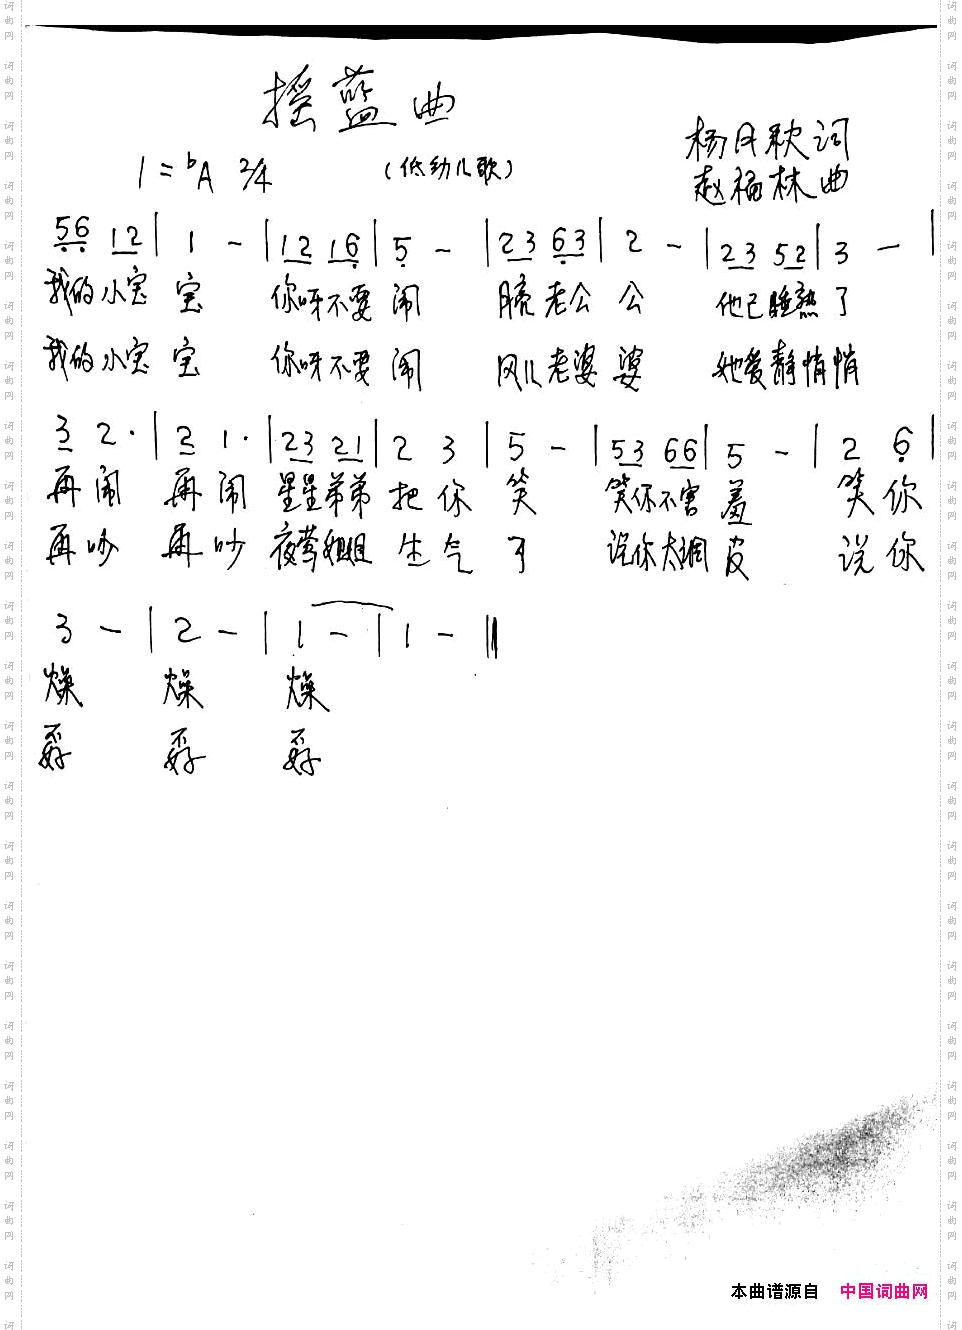 摇蓝曲
杨月秋词
1=ᵇA 2/4 （低幼儿歌）
赵福林曲
56 12 | 1 - | 12 16 | 5 - | 23 63 | 2 - | 23 52 | 3 - |
我的小宝宝 你呀不要闹 月亮老公公 他已睡熟了
我的小宝宝 你呀不要闹 风儿老婆婆 她爱静悄悄
3 2· | 2 1· | 23 21 | 2 3 | 5 - | 53 66 | 5 - | 2 6 |
再闹 再闹 星星弟弟把你笑 笑你不害羞 笑你
再吵 再吵 夜莺姐姐生气了 说你太调皮 说你
3 - | 2 - | 1 - | 1 - ‖
燥 燥 燥
孬 孬 孬
本曲谱源自 中国词曲网